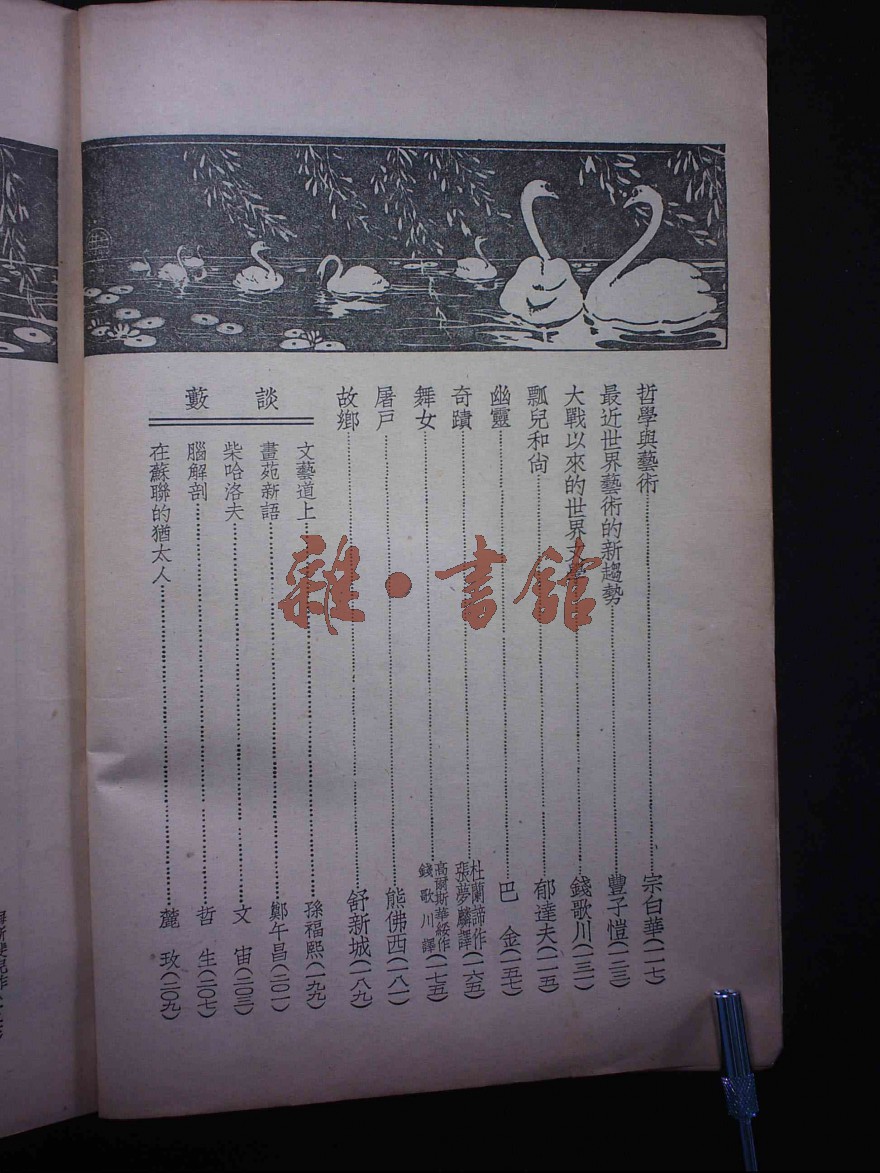 哲學與藝術……宗白華(一一七)
最近世界藝術的新趨勢……豐子愷(一二三)
大戰以來的世界文學……錢歌川(一三一)
瓢兒和尙……郁達夫(一一五)
幽靈……巴金(一五七)
奇蹟……杜蘭諦作 張夢麟譯(一六五)
舞女……高爾斯華綏作 錢歌川譯(一七五)
屠戶……熊佛西(一八一)
故鄉……舒新城(一八九)
談藪
文藝道上……孫福熙(一九九)
畫苑新語……鄭午昌(二〇一)
柴哈洛夫……文宙(二〇三)
腦解剖……哲生(二〇七)
在蘇聯的猶太人……麓玫(二〇九)
雜·書館